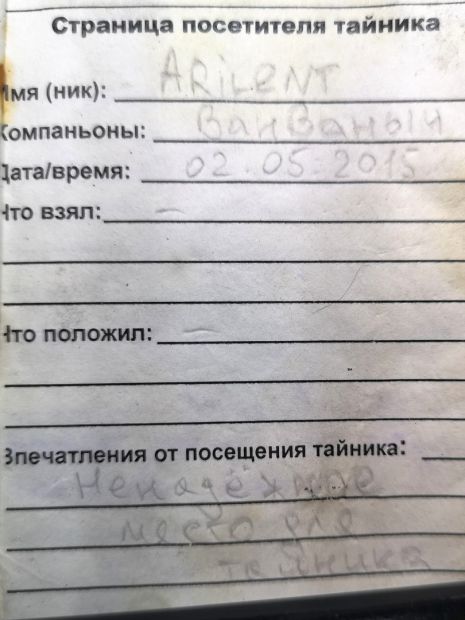 Страница посетителя тайника
Имя (ник): ARiLENT
Компаньоны: ВанВаныч
Дата/время: 02.05.2015
Что взял: —
Что положил: —
Впечатления от посещения тайника:
Ненадёжное
место для
тайника